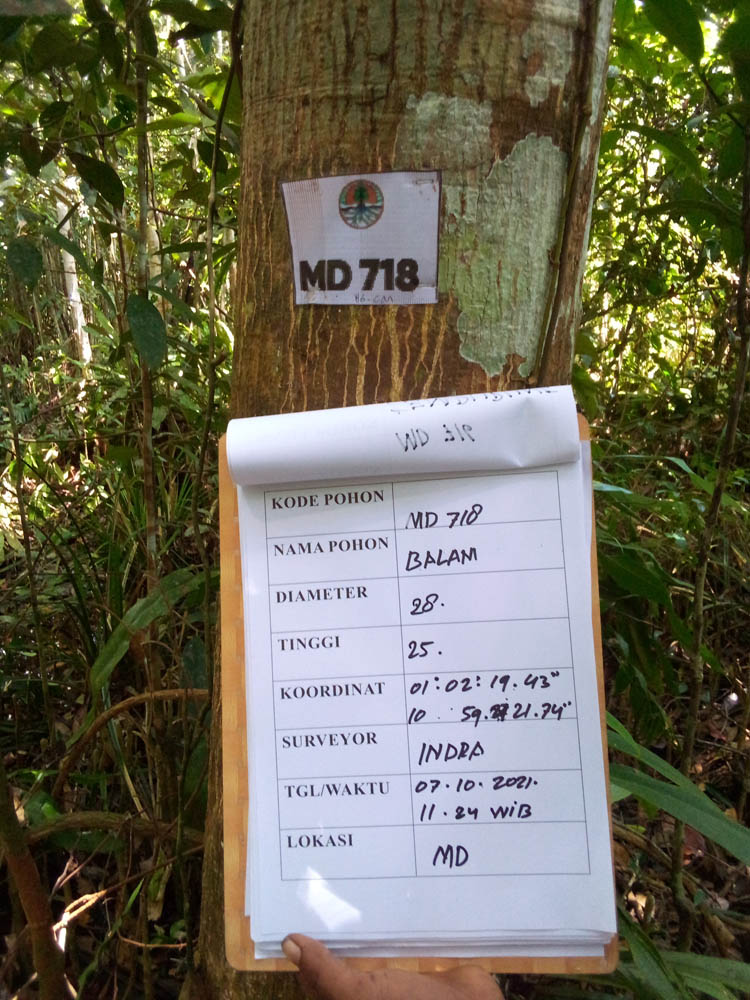 MD 718
KODE POHON
MD 718
NAMA POHON
BALAM
DIAMETER
28.
TINGGI
25.
KOORDINAT
01: 02: 19. 43"
10 59. 21. 74"
SURVEYOR
INDRA
TGL/WAKTU
07. 10. 2021.
11. 24 WIB
LOKASI
MD